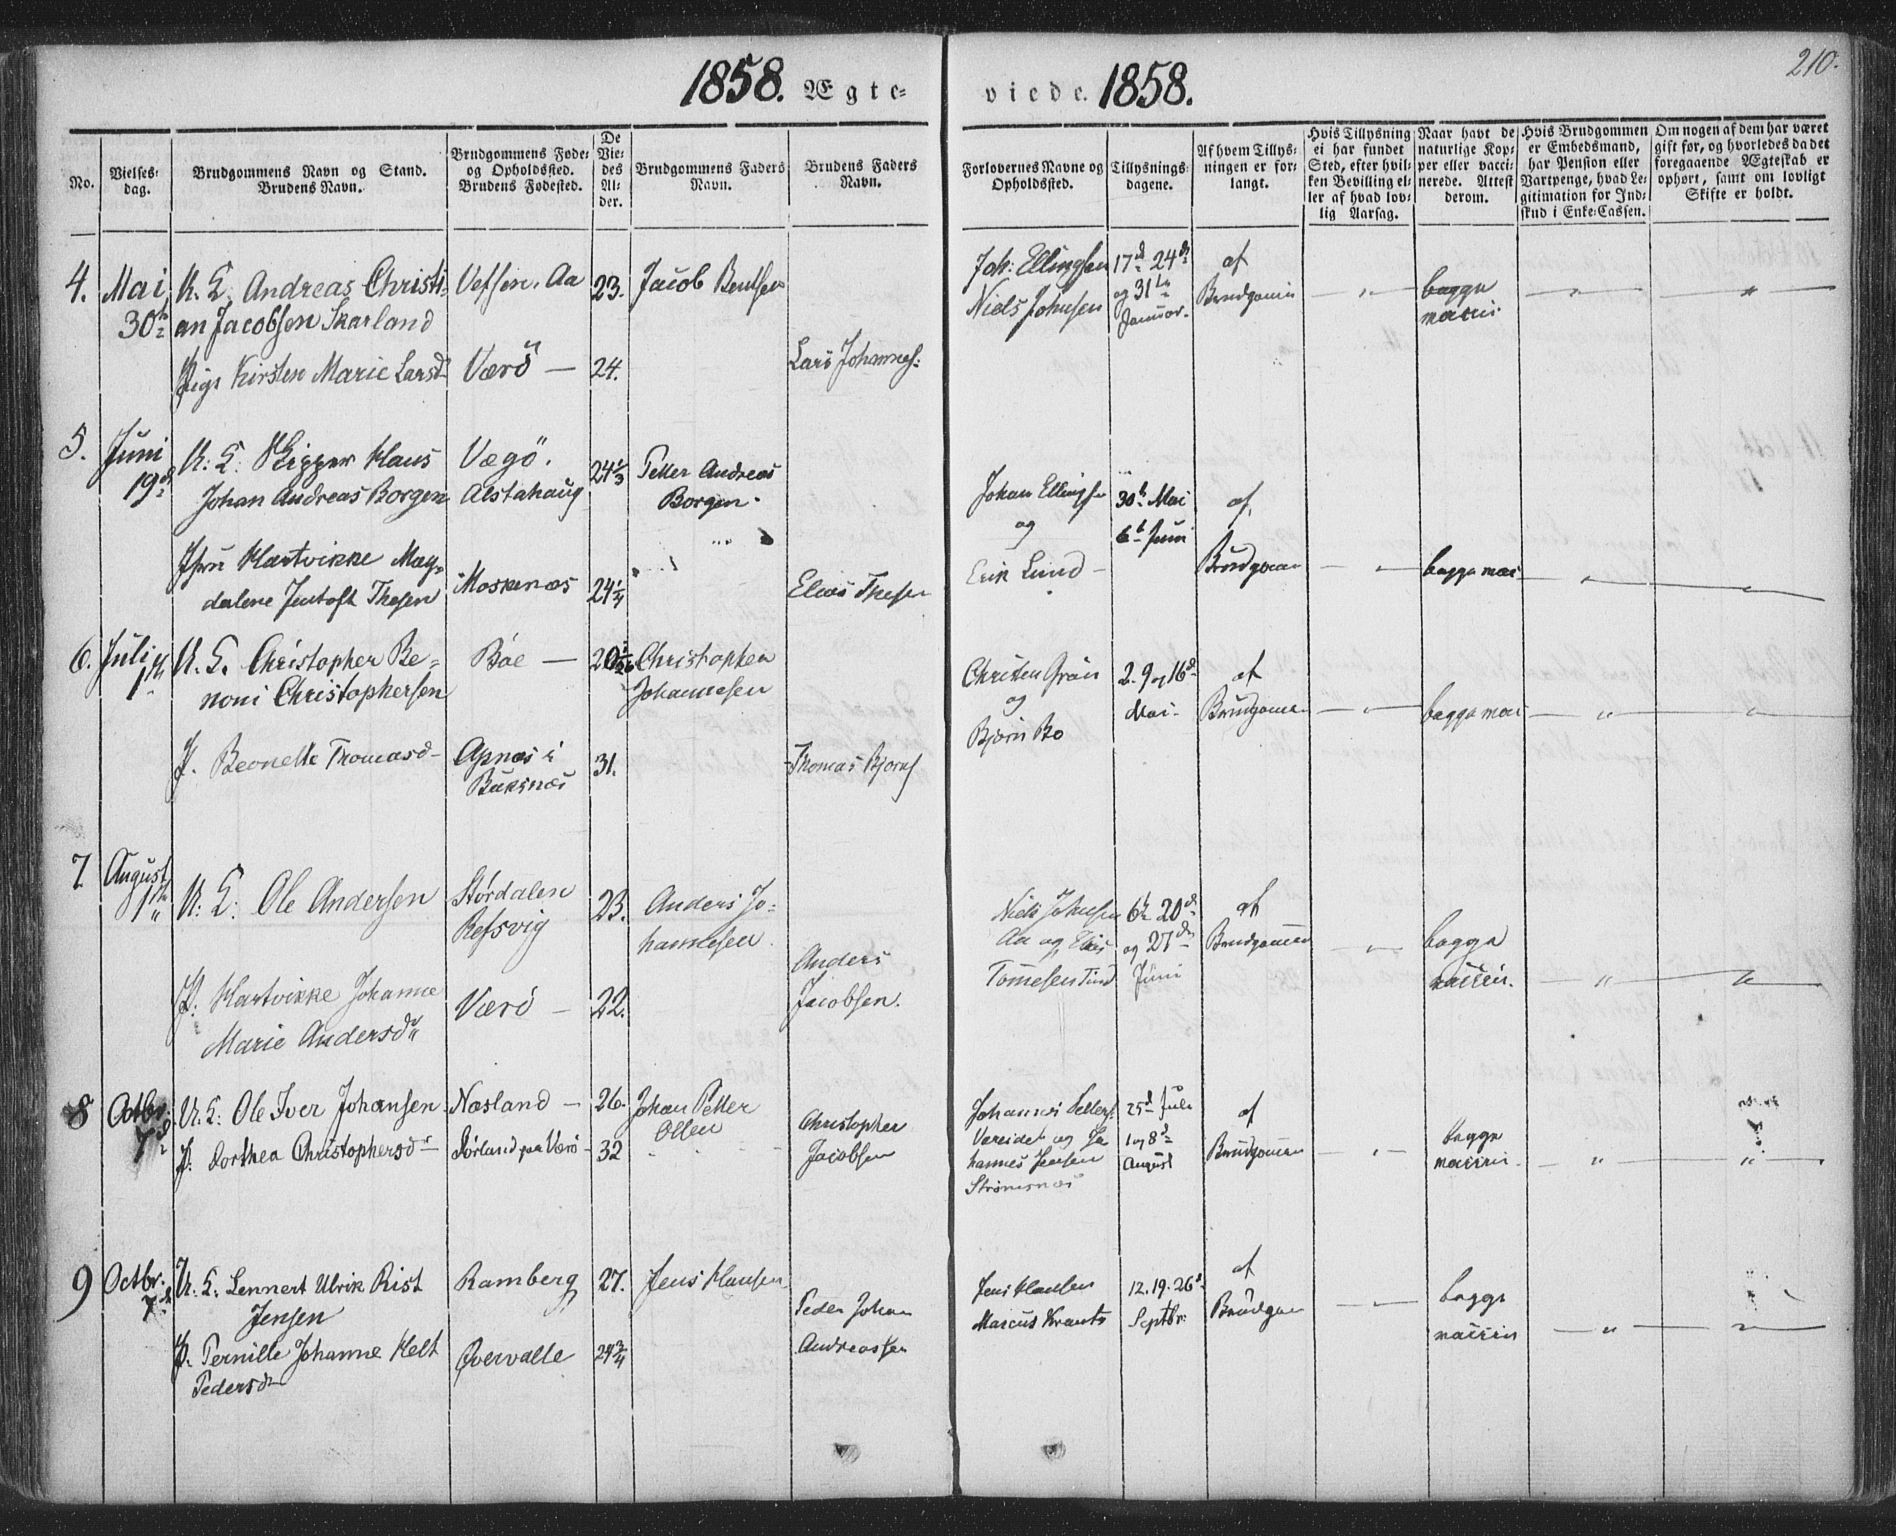 1858. Ægte-
viede. 1858.
210.
No.
Vielses-
dag.
Brudgommens Navn og Stand.
Brudens Navn.
Brudgommens Føde-
og Opholdssted.
Brudens Fødested.
De
Vie-
des
Al-
der.
Brudgommens Faders
Navn.
Brudens Faders
Navn.
Forlovernes Navne og
Opholdssted.
Tillysnings-
dagene.
Af hvem Tillys-
ningen er for-
langt.
Hvis Tillysning
ei har fundet
Sted, efter hvil-
ken Bevilling el-
ler af hvad lov-
lig Aarsag.
Naar havt de
naturlige Kop-
per eller vacci-
nerede. Attest
derom.
Hvis Brudgommen
er Embedsmand,
har Pension eller
Vartpenge, hvad Le-
gitimation for Ind-
skud i Enke-Cassen.
Om nogen af dem har været
gift før, og hvorledes da det
foregaaende Ægteskab er
ophørt, samt om lovligt
Skifte er holdt.
4.
Mai
30
Andreas Christi-
an Jacobsen Skarland
Pige Kirsten Marie Larsd
Vefsen. Aa
Værö —
23.
24.
Jacob Bentsen
Lars Johannes:
Joh: Ellingsen
Niels Johnsen
17d 24d
og 31te
Januar.
af
Brudgomm
— " —
begge
— " —
5.
Juni
19d
Klaus
Johan Andreas Borgen
Hartvikke Mag-
dalene Jentoft Thesen
Vegö.
Alstahaug
Moskenæs
24 1/3
24 1/4
Petter Andreas
Borgen.
Elias Thesen
Johan Ellings
og
Erik Lund
30t Mai
6t Juni
af
Brudgomm
begge
6.
Juli
1
Christopher Be-
noni Christophersen
P. Beonelle Thomasd
Böe —
Apnæs i
Buksnæs
31.
Christopher
Johannesen
Thomas Bjorns
Christen Grön
og
Björn Bo
2. 9 og 16d
Mai.
af
Brudgomm
begge
7.
August
1
Ole Andersen
P. Hartvikke Johanne
Marie Andersd
Stördalen
Refsvig
Værö —
23.
22.
Anders Jo-
hannesen.
Anders
Jacobsen.
Niels Johnsen
Aa og
Tind
6t 20d
og 27d
Juni
af
Brudgommen
begge
vaccin.
8
Octbr.
7d
Ole Iver Johansen
P. Dorthea Christophersd
Næsland —
Sörland paa Værö
26.
32
Johan Petter
Olsen
Christopher
Jacobsen
Johannes
og Jo
hannes Jensen
Strömsnæs
25d Juli
1 og 8d
August
af
Brudgommen
begge
vaccin.
9
Octbr.
7d
Lennert Ulrik Rist
Jensen
P. Pernille Johanne Helt
Pedersd
Ramberg
Övervalle
27.
24 3/4
Jens Hansen
Peder Johan
Andreassen
Jens Hansen
Marcus Krantz
12. 19. 26d
Septbr.
af
Brudgom
begge
vaccin